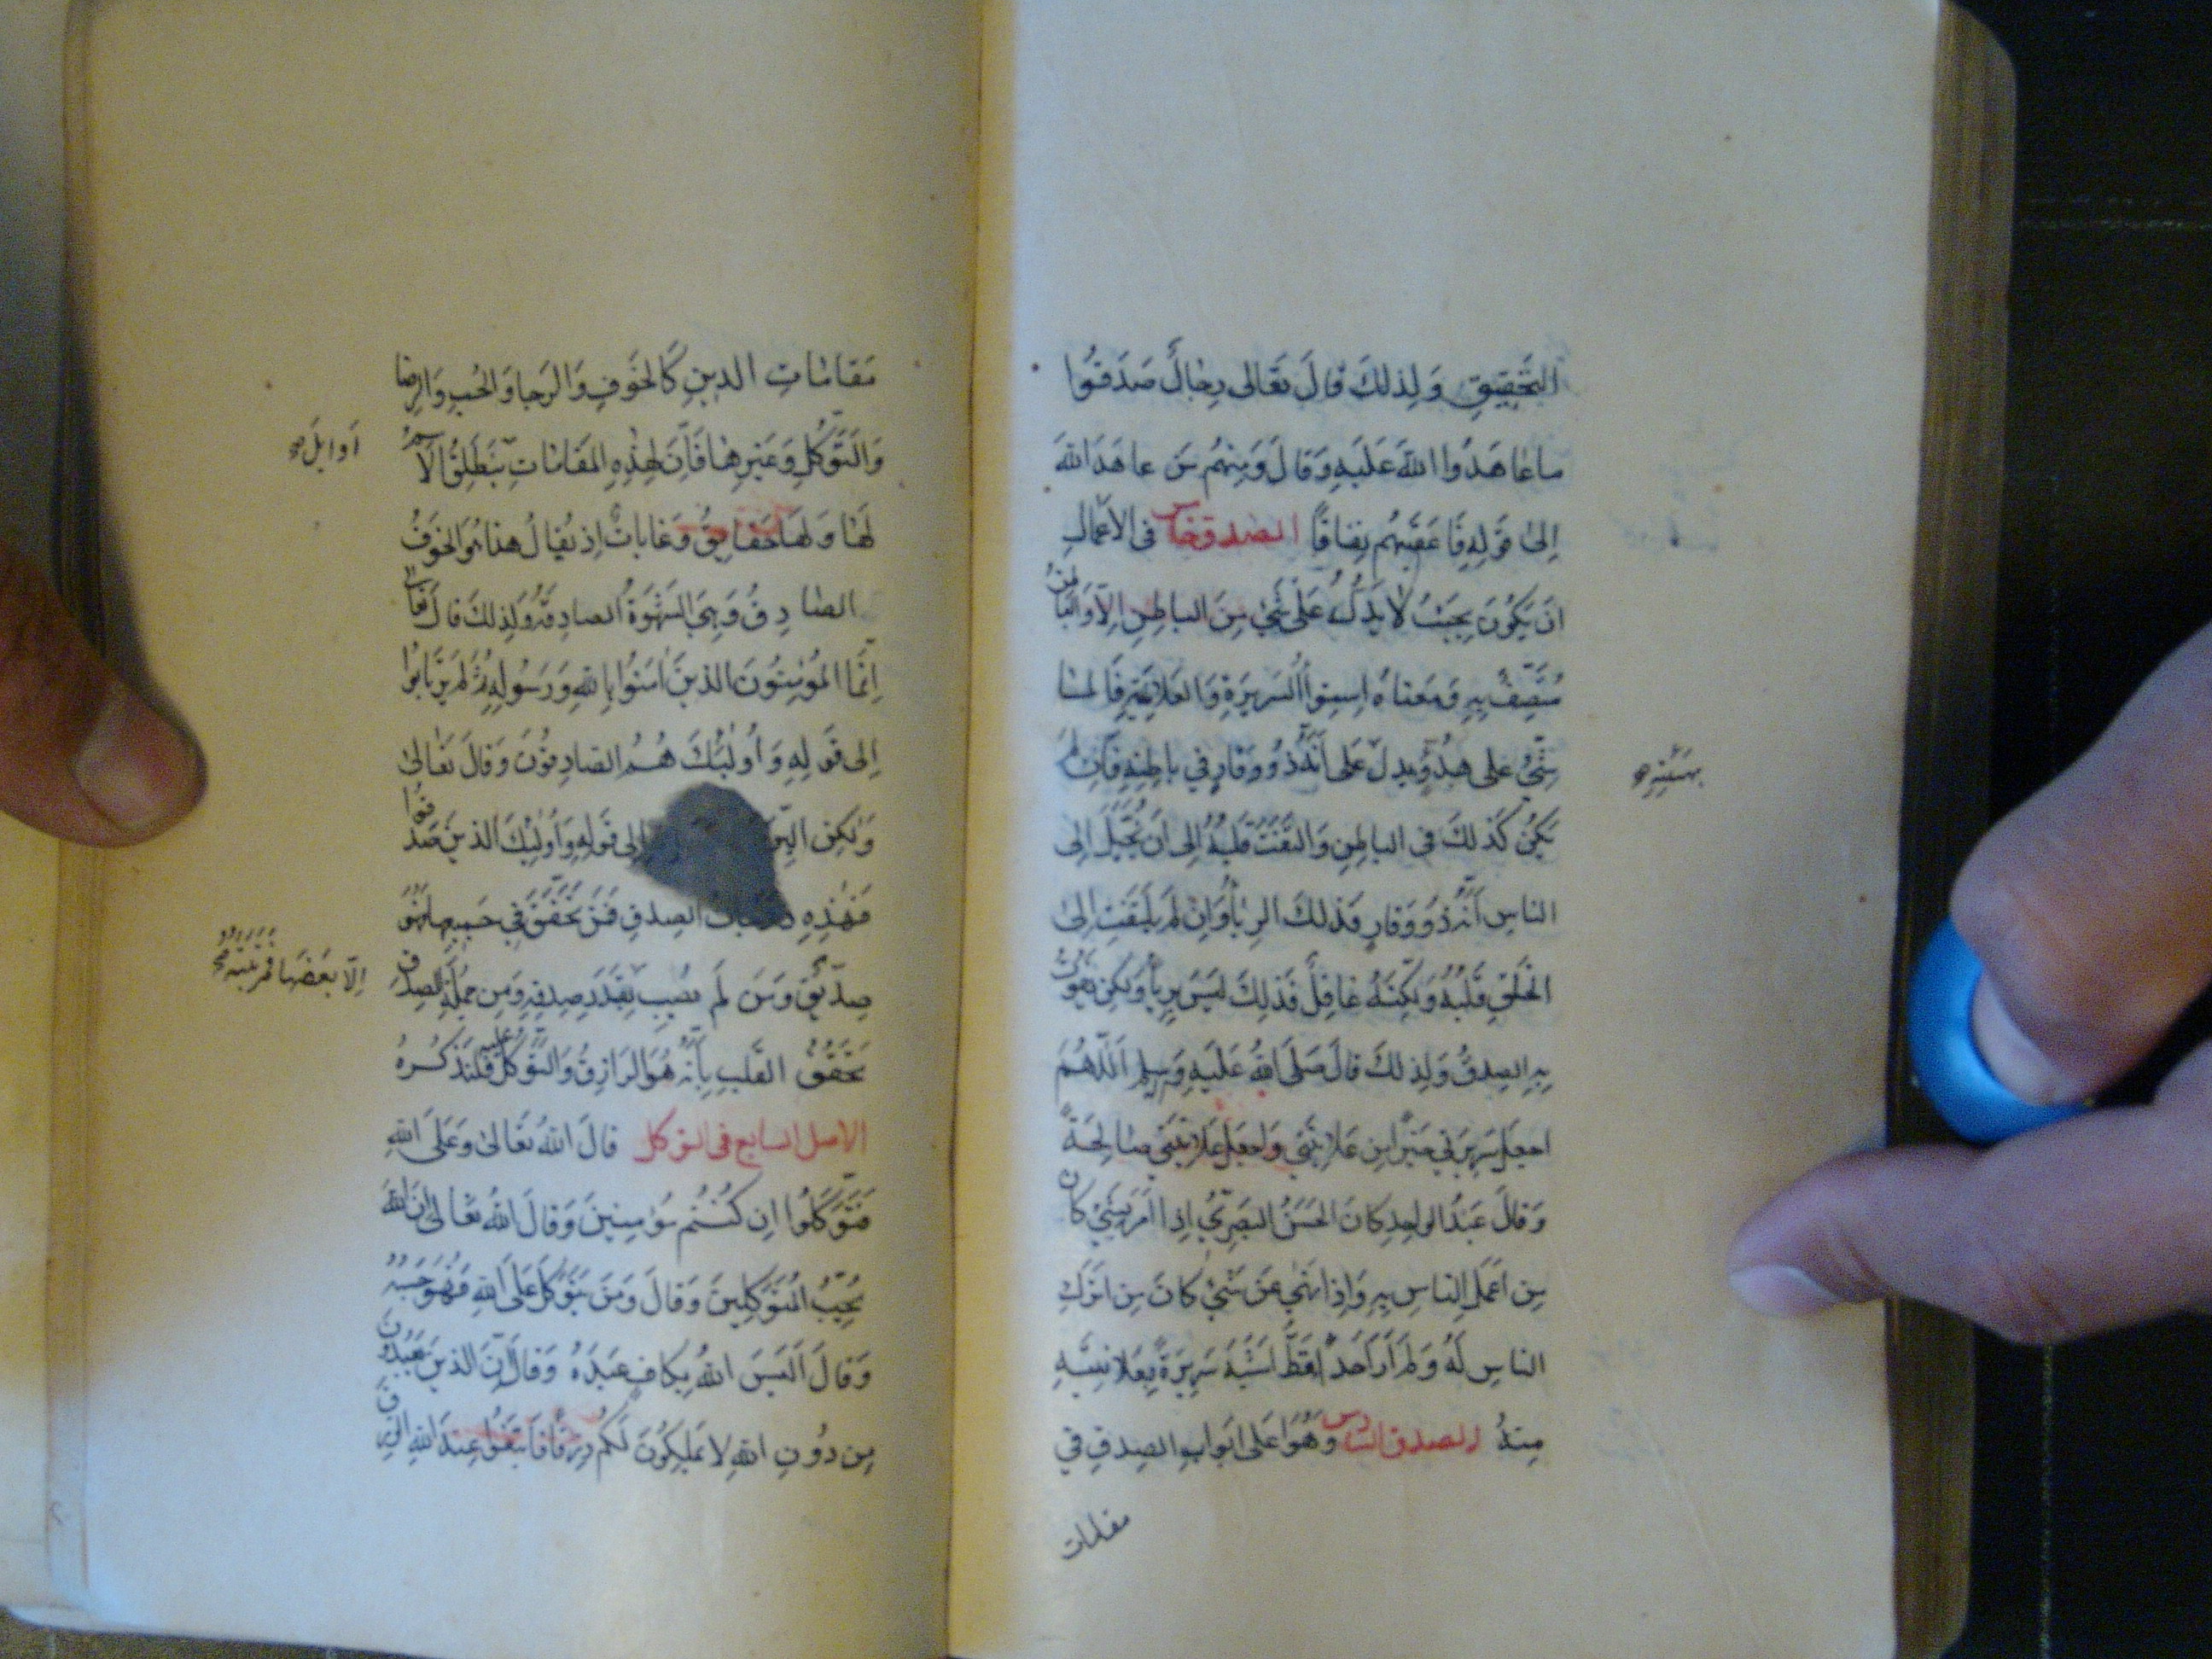 التَّحْقِيقِ وَلِذلكَ قالَ تَعَالى رِجَالٌ صَدَقُوا
ماعَاهَدُوا اللهَ عَلَيهِ وَقالَ وَمِنهُم مَن عاهَدَ اللهَ
اِلى قَولِهِ فَاَعقَبَهُم نِفاقًا الصدق خامس فى الاَعمالِ
ان يَكُونَ بِحَيثُ لا يَدُلُّ عَلى شَيءٍ مِنَ الباطِنِ اِلاّ وَالباطِنُ
مُتَّصِفٌ بِهِ وَمَعناهُ اِستِواُ السَرِيرَةِ وَالعَلانِيَةِ فَالماشى
عَلى هُدُوٍّ يدلّ عَلى اَنّهُ ذُو وَقارٍ في باطِنِهِ فَاِن لَم
بهَيئَتِهِ
يَكُن كَذلكَ فى الباطِنِ وَالتَفَتَ قَلبُهُ اِلى اَن يُخَيِّلَ اِلى
الناسِ اَنّهُ ذُو وَقارٍ فَذلكَ الرِياُ وَاِن لَم يَلتَفِت اِلى
الخَلقِ قَلبُهُ وَلكِنَّهُ غافِلٌ فَذلِكَ لَيسَ بِرِياٍ وَلكِن يَفُوتُ
بِهِ الصِدقُ وَلِذلكَ قالَ صَلّى اللهُ عَلَيهِ وَسلم اَللّهُمَّ
اجعَل سَرِيرَتي خَيرًا مِن عَلانِيَتي وَاجعَل عَلانِيَتي صالِحَةً
وَقالَ عَبدُ الواحِدِ كانَ الحَسَنُ البَصرِيُّ اِذا اَمَرَ بِشَيءٍ كانَ
مِن اَعمَلِ الناسِ بِهِ وَاِذا نَهى عَن شَيءٍ كانَ مِن اَترَكِ
الناسِ لَهُ وَلَم اَرَ اَحَدًا قَطُّ اَشبَهَ سَرِيرَةً بِعَلانِيَةٍ
مِنهُ الصدق السادس وَهُوَ اَعلى اَبوابِ الصِدقِ في
مقامات
مَقامَاتِ الدينِ كَالخَوفِ وَالرَجا وَالحُبِّ وَالرِضا
وَالتَّوَكُّلِ وَغَيرِها فَاِنَّ لِهذِهِ المَقامَاتِ يَنطَلِقُ الاسمُ
اَوايِلَ
لَها وَلَها حَقايِقُ وَغاياتٌ اِذ يُقالُ هذا هُوَ الخَوفُ
الصادِقُ وَهِيَ الشَهوَةُ الصادِقَةُ وَلِذلكَ قالَ تَعالى
اِنَّما المُؤمِنُونَ الذينَ امَنُوا بِاللهِ وَرَسُولِهِ ثُمَّ لَم يَرتابُوا
اِلى قَولِهِ وَاُولئِكَ هُمُ الصادِقُونَ وَقالَ تَعالى
وَلكِن البِرّ اِلى قَولِهِ وَاُولئِكَ الذينَ صَدَقُوا
فَهذِهِ الصِدقِ فَمَن تَحَقَّقَ في جَمِيعِها فَهُوَ
صِدّيقٌ وَمَن لَم يُصِب بِقَدرِ صِدقِهِ وَمِن جُملَةِ الصِدقِ
اِلّا بَعضَها فَمَرتَبَتُهُ
تَحَقُّقُ القَلبِ بِاَنّهُ هُوَ الرَازِقُ وَالتَوَكُّلُ عليه فَلنَذكُرهُ
الاصل السابع فى التوكل قالَ اللهُ تَعَالىٰ وَعَلَى اللهِ
فَتَوَكَّلُوا اِن كُنتُم مُؤمِنِينَ وَقالَ اللهُ تَعَالى اِنَّ اللهَ
يُحِبُّ المُتَوَكِّلِينَ وَقالَ وَمَن يَتَوَكَّل عَلَى اللهِ فَهُوَ حَسبُهُ
وَقالَ اَلَيسَ اللهُ بِكافٍ عَبدَهُ وَقالَ اِنَّ الذينَ تَعبُدُونَ
مِن دُونِ اللهِ لا يَملِكُونَ لَكُم رِزقًا فَابتَغُوا عِندَ اللهِ الرِزقَ